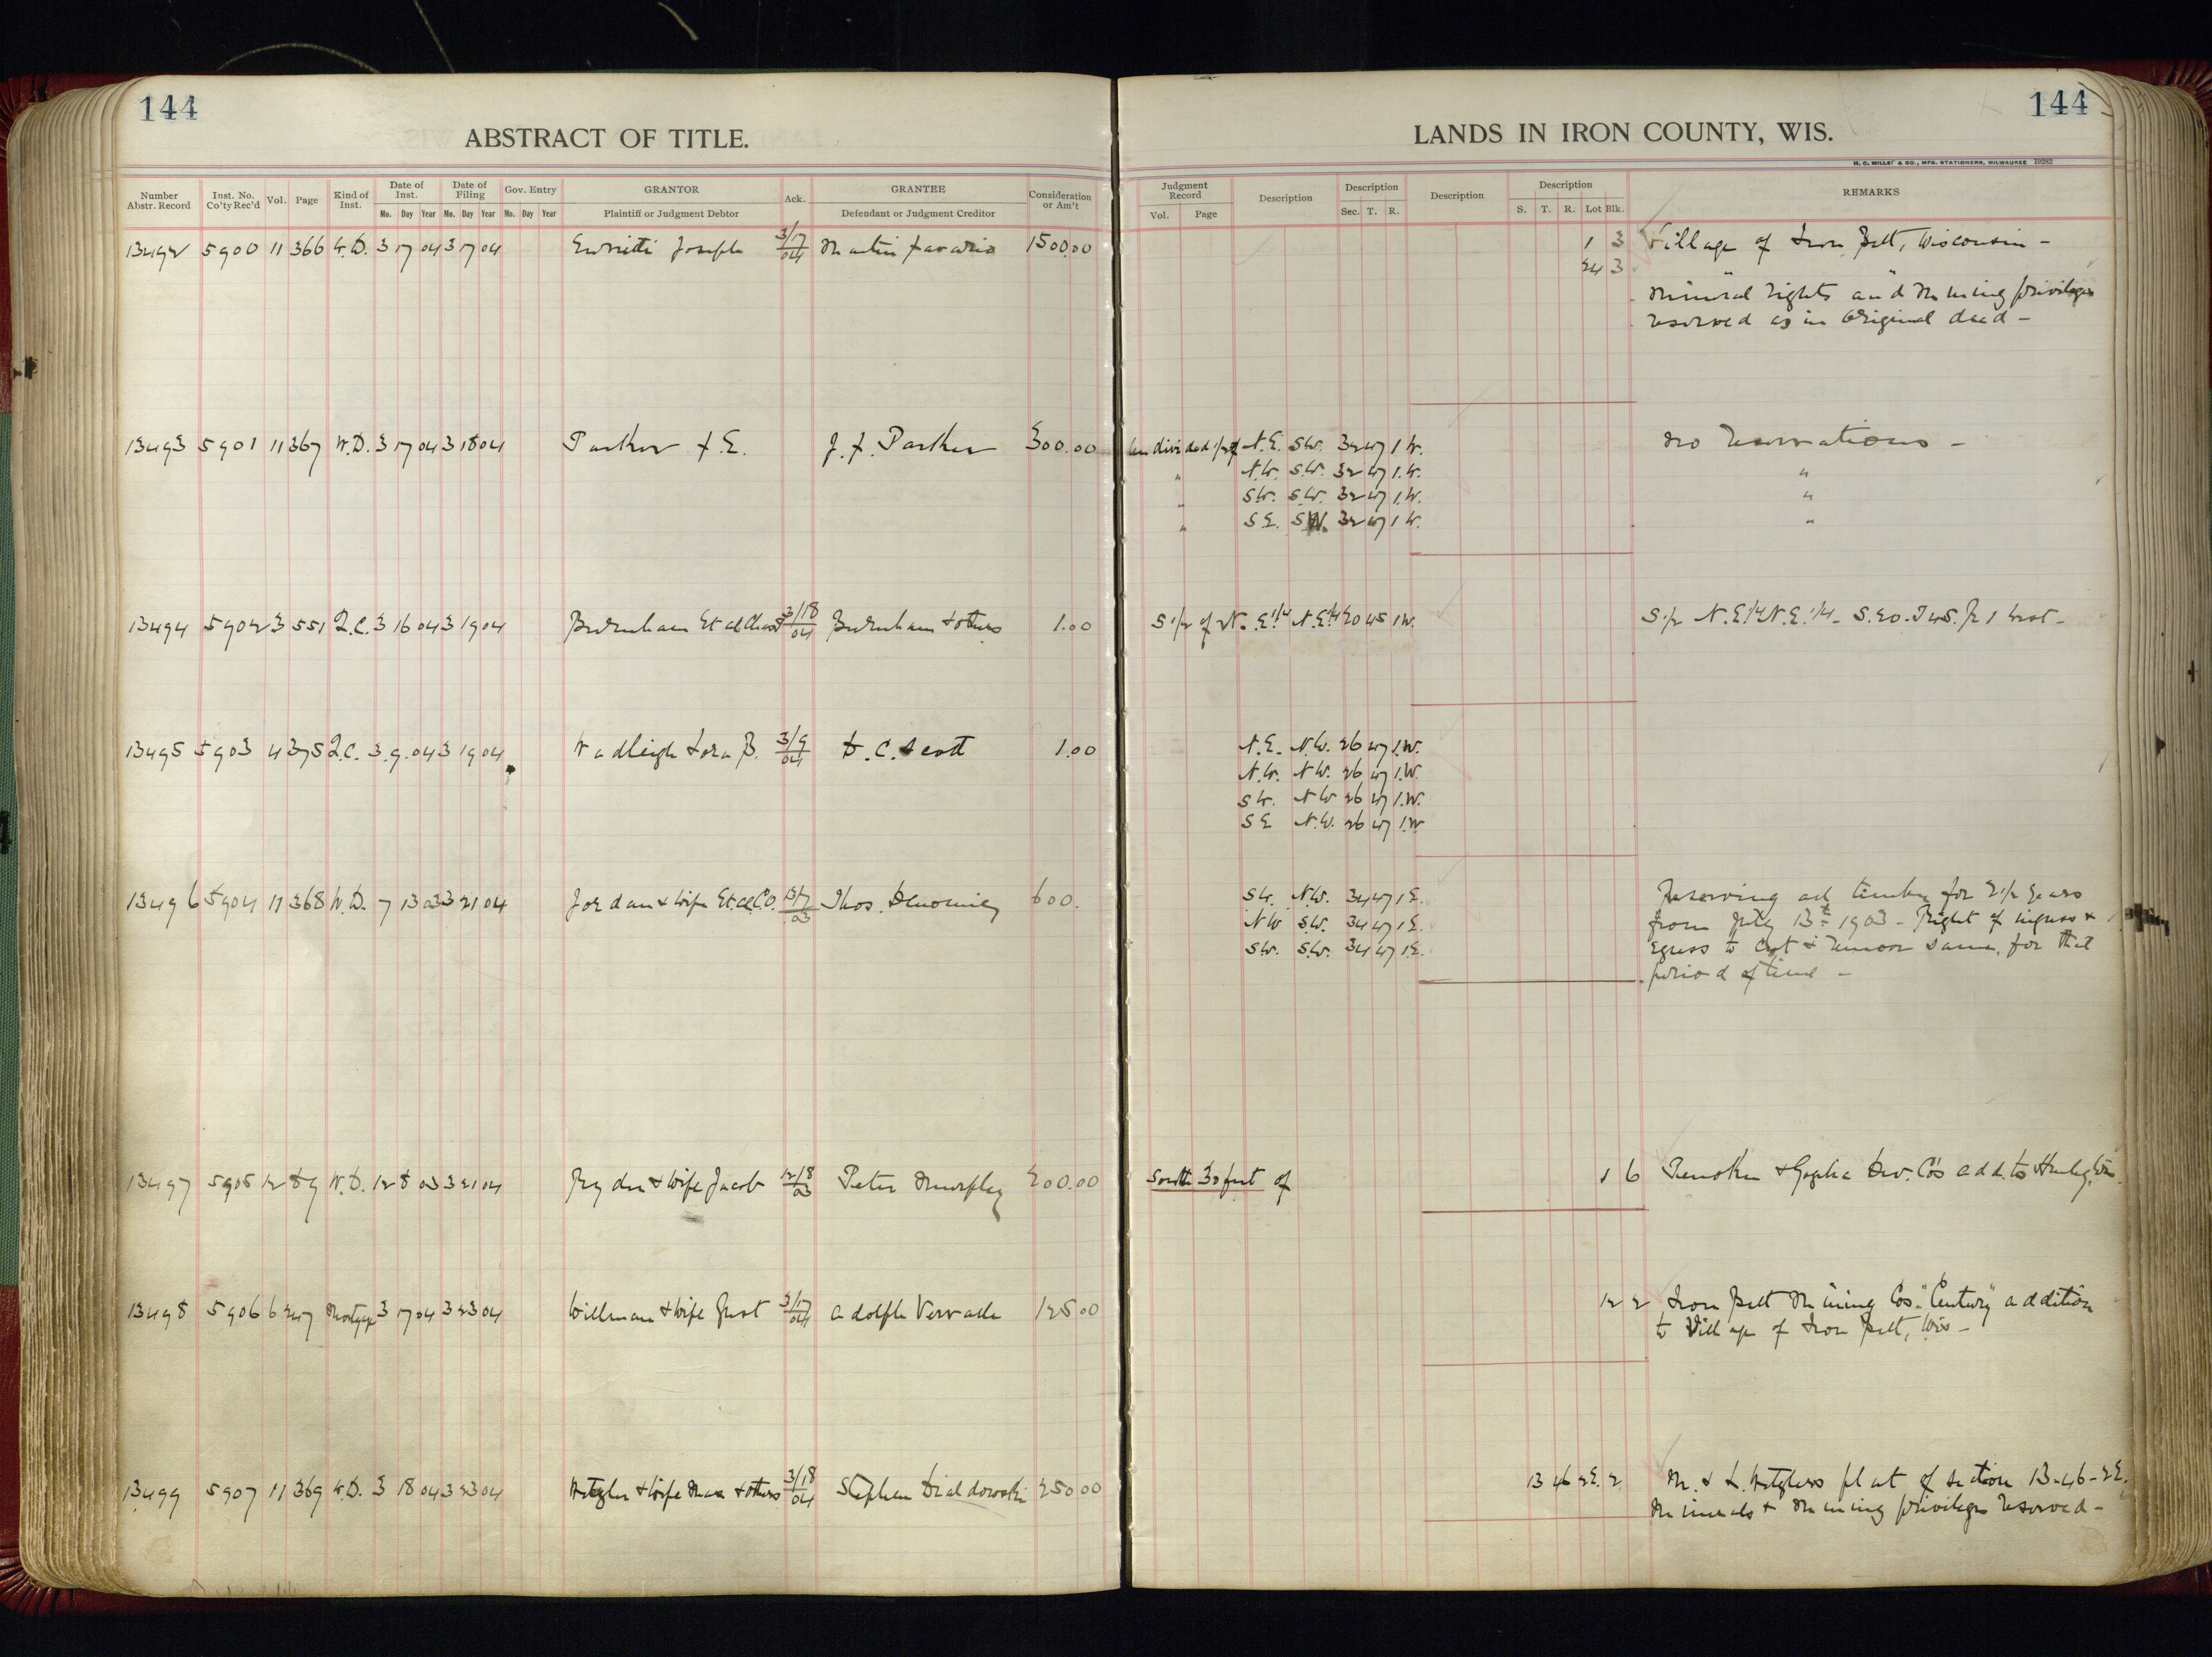 144
ABSTRACT OF TITLE.
Number Abstr. Record Inst. No. Co'ty Rec'd Vol. Page Kind of Inst. Date of Inst. Date of Filing Gov. Entry GRANTOR Ack. GRANTEE Consideration or Am't
Mo. Day Year Mo. Day Year Mo. Day Year Plaintiff or Judgment Debtor Defendant or Judgment Creditor
13492 5900 11 366 W.D. 3 17 04 3 17 04 Joseph 3/17/04 Martin 1500.00
13493 5901 11 367 W.D. 3 17 04 3 18 04 Parker F.E. J.F. Parker 300.00
13494 5902 3 551 Q.C. 3 16 04 3 19 04 Burnham Et al Chas 3/18/04 Burnham & others 1.00
13495 5903 4 375 Q.C. 3.9.04 3 19 04 Wadleigh Lora B. 3/9/04 D.C. Scott 1.00
13496 5904 11 368 W.D. 7 13 03 3 21 04 Jordan & wife Et al C.O. 13/7/03 Thos. Denomie 600.
13497 5905 12 89 W.D. 12 8 03 3 21 04 & Wife Jacob 12/8/03 Peter Murphy 200.00
13498 5906 6 247 Mortgage 3 17 04 3 23 04 Willman & Wife Gust 3/17/04 Adolph 125.00
13499 5907 11 369 W.D. 3 18 04 3 23 04 Wetzler & Wife Max & others 3/18/04 Stephen 250.00
144
LANDS IN IRON COUNTY, WIS.
H. C. MILLER & CO., MFG. STATIONERS, MILWAUKEE 19282
Judgment Record Description Description Description Description REMARKS
Vol. Page Sec. T. R. S. T. R. Lot Blk.
1 3 Village of Iron Belt, Wisconsin -
24 3
Mineral rights and Mining privileges
reserved as in Original deed -
Undivided 1/2 of N.E. S.W. 32 47 1 W. No Reservations -
" N.W. S.W. 32 47 1.W. "
" S.W. S.W. 32 47 1.W. "
" S.E. S.W. 32 47 1 W. "
S 1/2 of N.E. 1/4 N.E. 1/4 20 45 1 W. S 1/2 N.E. 1/4 N.E. 1/4 - S.20. T 45. R 1 West -
N.E. N.W. 26 47 1.W.
N.W. N.W. 26 47 1.W.
S W. N W 26 47 1.W.
S E N.W. 26 47 1.W
S W. N.W. 34 47 1 E. Reserving all timber for 2 1/2 years
N W S.W. 34 47 1 E. from July 13th 1903 - Right of ingress &
S.W. S.W. 34 47 1.E. Egress to Cut & Remove same, for that
period of time -
South 30 feet of 1 6 Penokee & Gogebic Dev. Co's add. to Hurley, Wis.
12 2 Iron Belt Mining Cos. "Century" addition
to Village of Iron Belt, Wis -
13 46 2E. 2 M. & L. Wetzlers plat of section 13-46-2E.
Minerals & Mining privileges reserved -